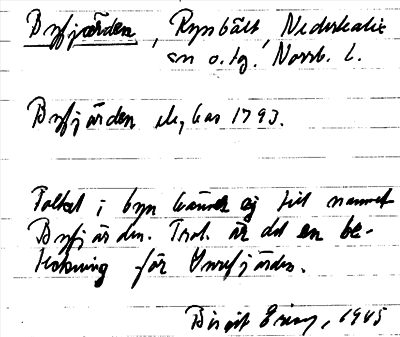 Byfjärden, Rysbält, Nederkalix
sn o. tg. Norrb. l.
Byfjärden 1793.
Folket i byn känner ej till namnet
Byfjärden. Trol. är det en be-
teckning för Innefjärden.
Birgit 1945